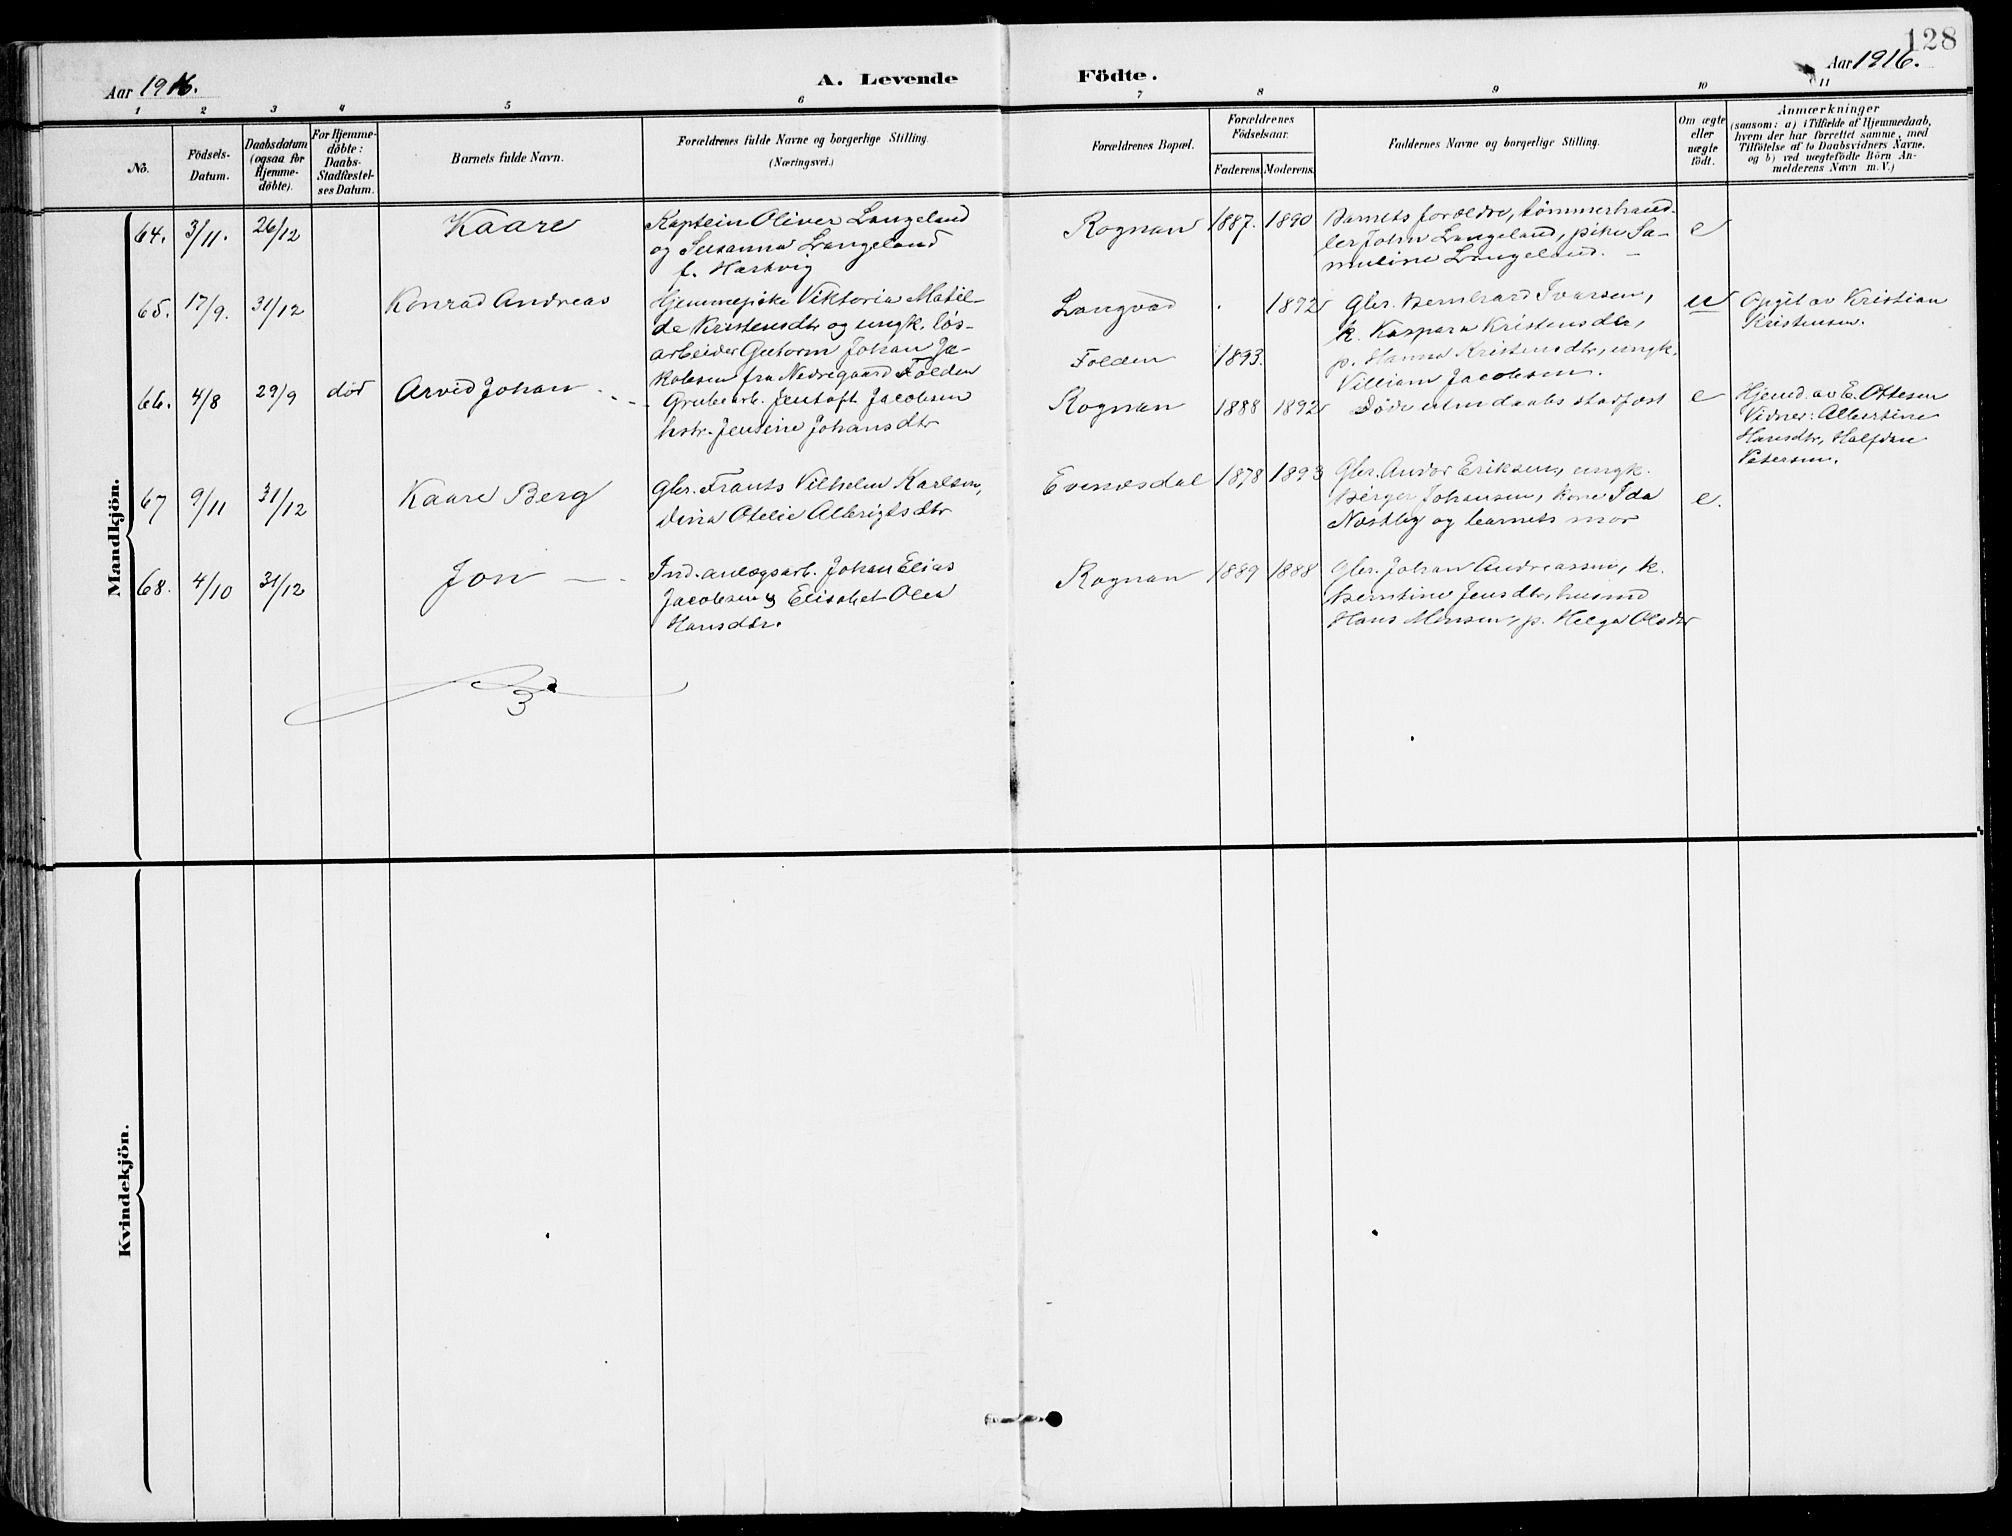 128
Aar 1916.
A. Levende Födte.
Aar 1916.
1 2 3 4 5 6 7 8 9 10 11
No.
Födsels-
Datum.
Daabsdatum
(ogsaa for
Hjemme-
döbte).
For Hjemme-
döbte:
Daabs-
Stadfæstel-
ses Datum.
Barnets fulde Navn.
Forældrenes fulde Navne og borgerlige Stilling.
(Næringsvei.)
Forældrenes Bopæl.
Forældrenes
Födselsaar.
Faderens. Moderens.
Faddernes Navne og borgerlige Stilling.
Om ægte
eller
uægte
födt.
Anmærkninger
(saasom: a) i Tilfælde af Hjemmedaab,
hvem der har forrettet samme, med
Tilföielse af to Daabsvidners Navne,
og b) ved uægtefödte Börn An-
melderens Navn m. V.)
Mandkjön.
64. 3/11. 26/12 Kaare
Kaptein Oliver Langeland
og Susanna Langeland
f. Hartvig
Rognan 1887. 1890
Barnets forældre, tömmerhand-
ler John Langeland, pike Sa-
muline Langeland. —
e
65. 17/9. 31/12 Konrad Andreas
Hjemmepike Viktoria Matil-
de Kristensdtr og ungk. lös-
arbeider Gutorm Johan Ja-
kobsen fra Nedregaard Folden
Langvad . 1892
Folden 1893.
Gbr. Bernhard Ivarsen,
k. Kaspara Kristensdtr,
p. Hanna Kristensdtr, ungk.
Villiam Jacobsen.
u
Opgit av Kristian
Kristensen.
66. 4/8 29/9 död Arvid Johan
Grubearb. Jentoft Jacobsen
hstr. Jensine Johansdtr
Rognan 1888 1892
Döde uten daabs stadfæst
e
Hjemd. av E. Ottesen
Vidner: Albertine
Hansdtr, Halfdan
Petersen.
67 9/11 31/12 Kaare Berg
Gbr. Frants Vilhelm Karlsen,
Dina Otelie Albrigtsdtr
Evenesdal 1878 1893
Gbr. Andor Eriksen, ungk.
Birger Johansen, kone Ida
Næstby og barnets mor
e.
68. 4/10 31/12 Jon
Ind. anlægsarb. Johan Elias
Jacobsen & Elisabet Olea
Hansdtr.
Rognan 1889 1888
Gbr. Johan Andreassen, k.
Berntine Jensdtr, husmd
Hans Monsen, p. Helga Olsdtr
Kvindekjön.